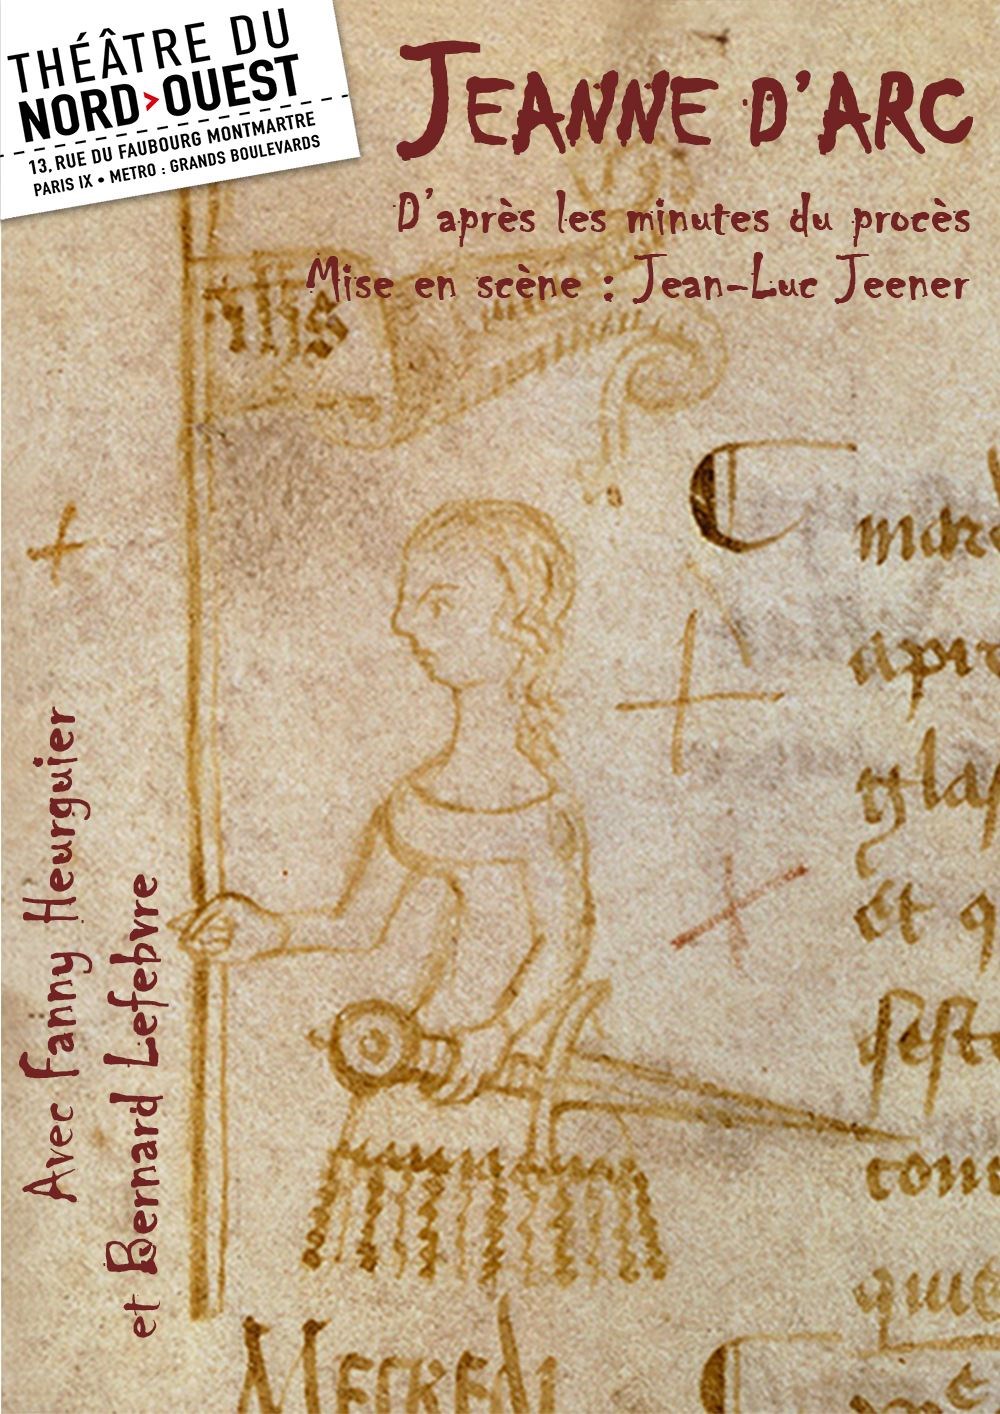 THÉÂTRE DU
NORD>OUEST
13, RUE DU FAUBOURG MONTMARTRE
PARIS IX • METRO : GRANDS BOULEVARDS
JEANNE D'ARC
D'après les minutes du procès
Mise en scène : Jean-Luc Jeener
ihs
Avec Fanny Heurguier
et Bernard Lefebvre
et q